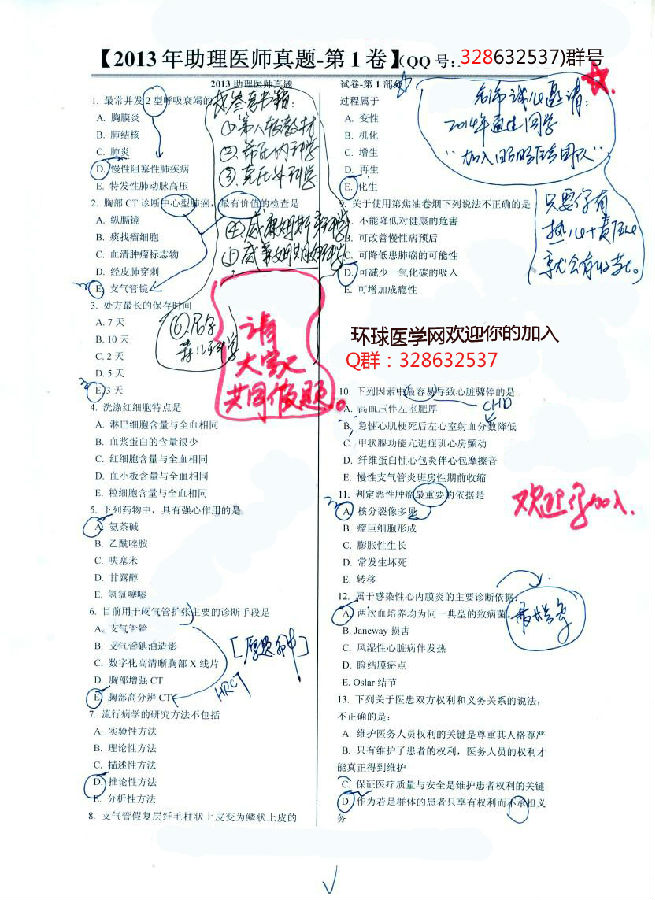 【2013年助理医师真题-第1卷】(QQ号:.328632537)群号
2013助理医师真题
1. 最常并发2型呼吸衰竭的
A. 胸膜炎
B. 肺结核
C. 肺炎
D. 慢性阻塞性肺疾病
E. 特发性肺动脉高压
2. 胸部CT诊断中心型肺癌,最有价值的检查是
A. 纵膈镜
B. 痰找瘤细胞
C. 血清肿瘤标志物
D. 经皮肺穿刺
E. 支气管镜
3. 处方最长的保存时间
A. 7天
B. 10天
C. 2天
D. 5天
E. 3天
4. 洗涤红细胞特点是
A. 淋巴细胞含量与全血相同
B. 血浆蛋白的含量很少
C. 红细胞含量与全血相同
D. 血小板含量与全血相同
E. 粒细胞含量与全血相同
5. 下列药物中,具有强心作用的是
A. 氨茶碱
B. 乙酰唑胺
C. 呋塞米
D. 甘露醇
E. 氢氯噻嗪
6. 目前用于支气管扩张主要的诊断手段是
A. 支气管镜
B. 支气管碘油造影
C. 数字化高清晰胸部X线片
D. 胸部增强CT
E. 胸部高分辨CT
HRCT
7. 流行病学的研究方法不包括
A. 实验性方法
B. 理论性方法
C. 描述性方法
D. 推论性方法
E. 分析性方法
8. 支气管假复层纤毛柱状上皮变为鳞状上皮的
请
大家
共同做题。
试卷-第1部
过程属于
A. 变性
B. 机化
C. 增生
D. 再生
E. 化生
名师诚心邀请
2014年通过同学
9. 关于使用第焦油卷烟下列说法不正确的是
A. 不能降低对健康的危害
B. 可改善慢性病预后
C. 可降低患肺癌的可能性
D. 可减少一氧化碳的吸入
E. 可增加成瘾性
只要你有
环球医学网欢迎你的加入
Q群:328632537
10. 下列因素中最容易导致心脏骤停的是
CHD
A. 高血压伴左室肥厚
B. 急性心肌梗死后左心室射血分数降低
C. 甲状腺功能亢进症伴心房颤动
D. 纤维蛋白性心包炎伴心包摩擦音
E. 慢性支气管炎伴房性期前收缩
11. 判定恶性肿瘤最重要的依据是
A. 核分裂像多见
B. 瘤巨细胞形成
C. 膨胀性生长
D. 常发生坏死
E. 转移
欢迎你加入.
12. 属于感染性心内膜炎的主要诊断依据:
A. 两次血培养均为同一典型的致病菌
B. Janeway损害
C. 风湿性心脏病伴发热
D. 脸结膜瘀点
E. Oslar结节
13. 下列关于医患双方权利和义务关系的说法,
不正确的是:
A. 维护医务人员权利的关键是尊重其人格尊严
B. 只有维护了患者的权利,医务人员的权利才
能真正得到维护
C. 保证医疗质量与安全是维护患者权利的关键
D. 作为若是群体的患者只享有权利而不承担义
务